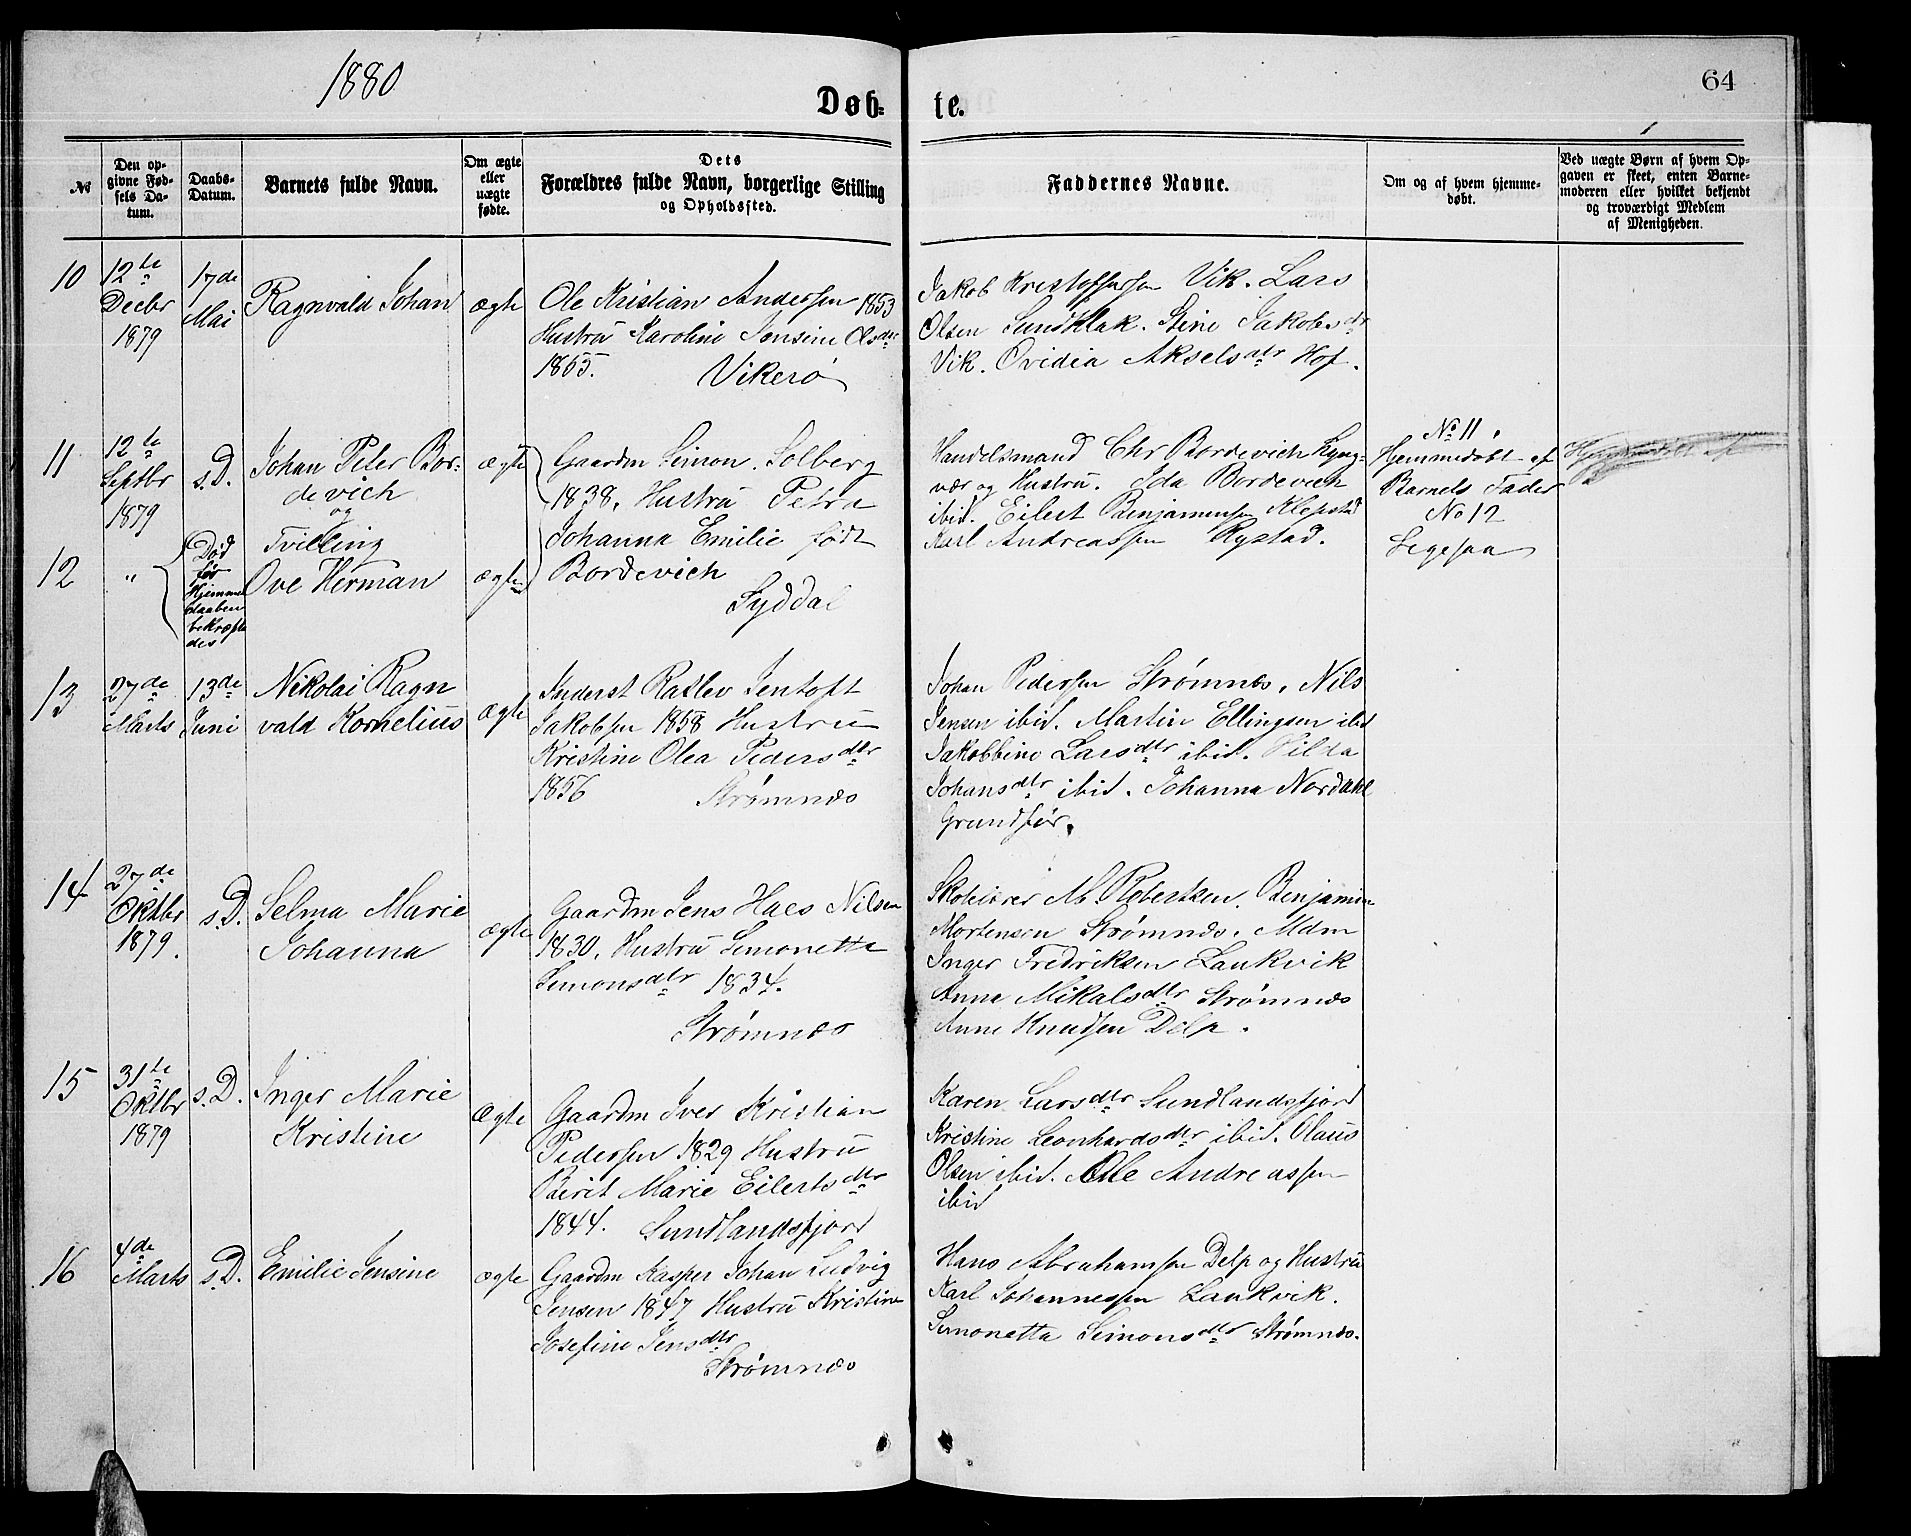 1880
Døb-
te.
64
№
Den op-
givne Fød-
sels Da-
tum.
Daabs-
Datum.
Barnets fulde Navn.
Om ægte
eller
uægte
fødte.
Dets
Forældres fulde Navn, borgerlige Stilling
og Opholdssted.
Faddernes Navne.
Om og af hvem hjemme-
døbt.
Ved uægte Børn af hvem Op-
gaven er skeet, enten Barne-
moderen eller hvilket bekjendt
og troværdigt Medlem
af Menigheden.
10
12te
Decbr
1879
17de
Mai
Ragnvald Johan
ægte
Ole Kristian Anderssen 1853
Hustru Karoline Jensine Olsdtr
1855. Vikerø
Jakob Kristoffersen Vik. Lars
Olsen Sundklak. Stine Jakobsdtr
Vik. Ovidia Akselsdtr Hof.
11
12te
Septbr
1879
s.D.
Johan Peter Bor-
devich
og
Tvilling
ægte
Gaardm Simon Solberg
1838. Hustru Petra
Johanna Emilie født
Bordevich
Syddal
Handelsmand Chr Bordevich Lyng-
vær og Hustru. Ida Bordevich
ibid. Eilert Benjaminsen Klepstad
Karl Andreassen Rystad.
No 11.
Hjemmedøbt af
Barnets Fader
No 12
Ligesaa
Hjemmedøbt af
12
"
Død
før
Hjemme
daaben
bekræfte
des
Ove Herman
ægte
13
27de
Marts
13de
Juni
Nikolai Ragn
vald Kornelius
ægte
Inderst Ratlev Jentoft
Jakobsen 1858 Hustru
Kristine Olea Pedersdtr
1856 Strømnæs
Johan Pedersen Strømnæs. Nils
Jensen ibid. Martin Ellingsen ibid
Jakobbine Larsdtr ibid. Hilda
Johansdtr ibid. Johanna Nordahl
Grundfør.
14
27de
Oktbr
1879.
s.D.
Selma Marie
Johanna
ægte
Gaardm Jens Haes Nilsen
1830. Hustru Simonetta
Simonsdtr 1834.
Strømnæs
Skolelærer M Robertsen. Benjamin
Mortensen Strømnæs. Mdm
Inger Fredriksen Laukvik
Anne Mikalsdtr Strømnæs
Anne Knudsen Delp.
15
31te
Oktbr
1879
s.D.
Inger Marie
Kristine
Ægte
Gaardm Iver Kristian
Pedersen 1829 Hustru
Berit Marie Eilertsdtr
1844. Sundlandsfjord
Karen Larsdtr Sundlandsfjord
Kristine Leonhardsdtr ibid. Olaus
Olsen ibid. Ole Andreassen
ibid
16
4de
Marts
s.D.
Emilie Jensine
ægte
Gaardm Kasper Johan Ludvig
Jensen 1847 Hustru Kristine
Josefine Jensdtr
Strømnæs
Hans Abrahamsen Delp og Hustru
Karl Johannessen Laukvik.
Simonetta Simonsdtr Strømnæs.